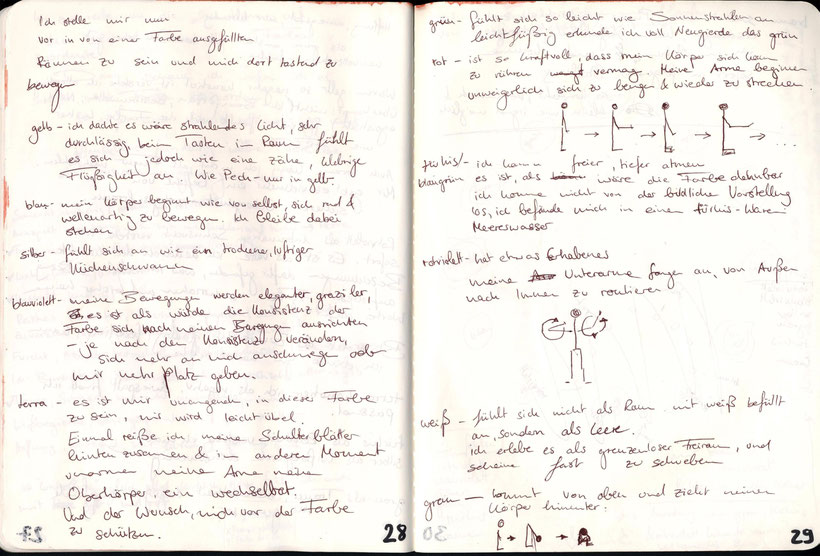 Ich stelle mir nun
vor in von einer Farbe ausgefüllten
Räumen zu sein und mich dort tastend zu
bewegen
gelb - ich dachte es wäre strahlendes Licht, sehr
durchlässig, beim Tasten im Raum fühlt
es sich jedoch wie eine zähe, klebrige
Flüßigkeit an. Wie Pech - nur in gelb.
blau - mein Körper beginnt wie von selbst, sich rund &
wellenartig zu bewegen. Ich bleibe dabei
stehen
silber - fühlt sich an wie ein trockener, luftiger
Küchenschwamm
blauviolett - meine Bewegungen werden eleganter, graziler,
es ist als würde die Konsistenz der
Farbe sich nach meinen Bewegungen ausrichten
- je nach dem Konsistenz verändern,
sich mehr an mich anschmiegen oder
mir mehr Platz geben.
terra - es ist mir unangenehm, in dieser Farbe
zu sein, mir wird leicht übel.
Einmal reiße ich meine Schulterblätter
hinten zusammen & im anderen Moment
umarmen meine Arme meine
Oberkörper, ein Wechselbad.
Und der Wunsch, mich vor der Farbe
zu schützen.
27
28
grün - fühlt sich so leicht wie Sonnenstrahlen an
leichtfüßig erkunde ich voll Neugierde das grün
rot - ist so kraftvoll, dass mein Körper sich kaum
zu rühren vermag. Meine Arme beginnen
unweigerlich sich zu beugen & wieder zu strecken.
türkis/ - ich kann freier, tiefer atmen
blaugrün es ist, als wäre die Farbe dehnbar
ich komme nicht von der bildlichen Vorstellung
los, ich befände mich in einem türkis-klaren
Meereswasser
rotviolett - hat etwas Erhabenes
meine Unterarme fangen an, von Außen
nach Innen zu routieren
weiß - fühlt sich nicht als Raum mit weiß befüllt
an, sondern als Leere.
ich erlebe es als grenzenloser Freiraum, und
scheine fast zu schweben
grau - kommt von oben und zieht meinen
Körper hinunter.
30
29